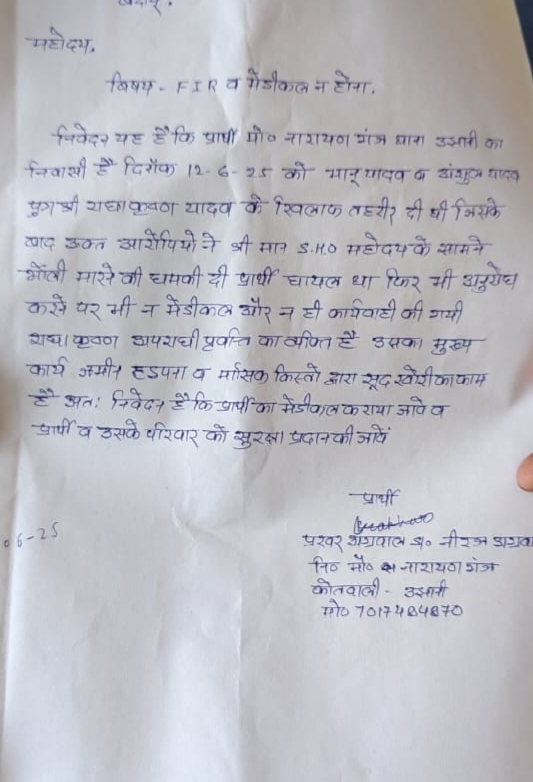 बदायूं.
महोदय,
विषय - FIR व मेडीकल न होना.
निवेदन यह है कि प्रार्थी मो० नारायण गंज थाना उझानी का
निवासी है दिनाँक 12-6-25 को भानू यादव व अंशुल यादव
पुत्र श्री राधाकृष्ण यादव के खिलाफ तहरीर दी थी जिसके
बाद उक्त आरोपियो ने श्री मान S.H.O महोदय के सामने
गोली मारने की धमकी दी प्रार्थी घायल था फिर भी अनुरोध
करने पर भी न मेडीकल और न ही कार्यवाही की गयी
राधाकृष्ण अपराधी प्रवत्ति का व्यक्ति है उसका मुख्य
कार्य जमीन हडपना व मासिक किस्तो द्वारा सूद खोरी का काम
है अतः निवेदन है कि प्रार्थी का मेडीकल कराया जावे व
प्रार्थी व उसके परिवार को सुरक्षा प्रदान की जावें
प्रार्थी
प्रखर अग्रवाल s/o नीरज अग्रवा
नि० मो० नारायण गंज
06-25
कोतवाली - उझानी
मो० 7017484870